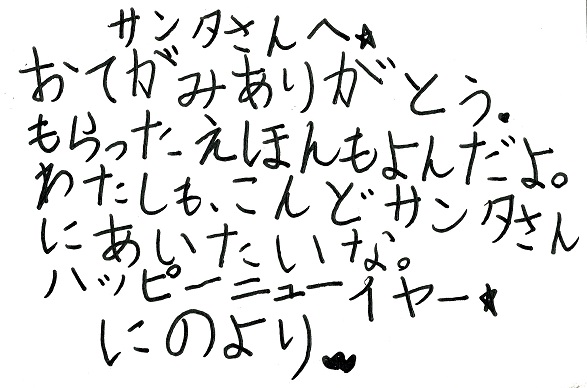 サンタさんへ★
おてがみありがとう。
もらったえほんもよんだよ。
わたしも、こんどサンタさん
にあいたいな。
ハッピーニューイヤー★
にのより♥